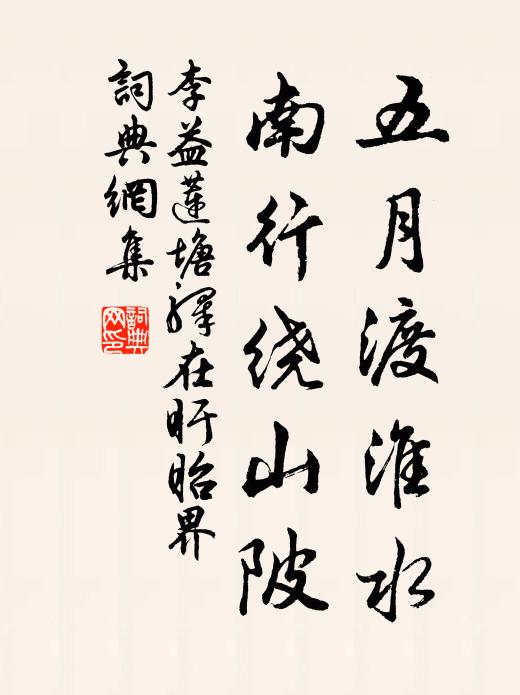 五月渡淮水
南行绕山陂
李益蓮塘驛在盱眙界
詞典網集
詞典网印